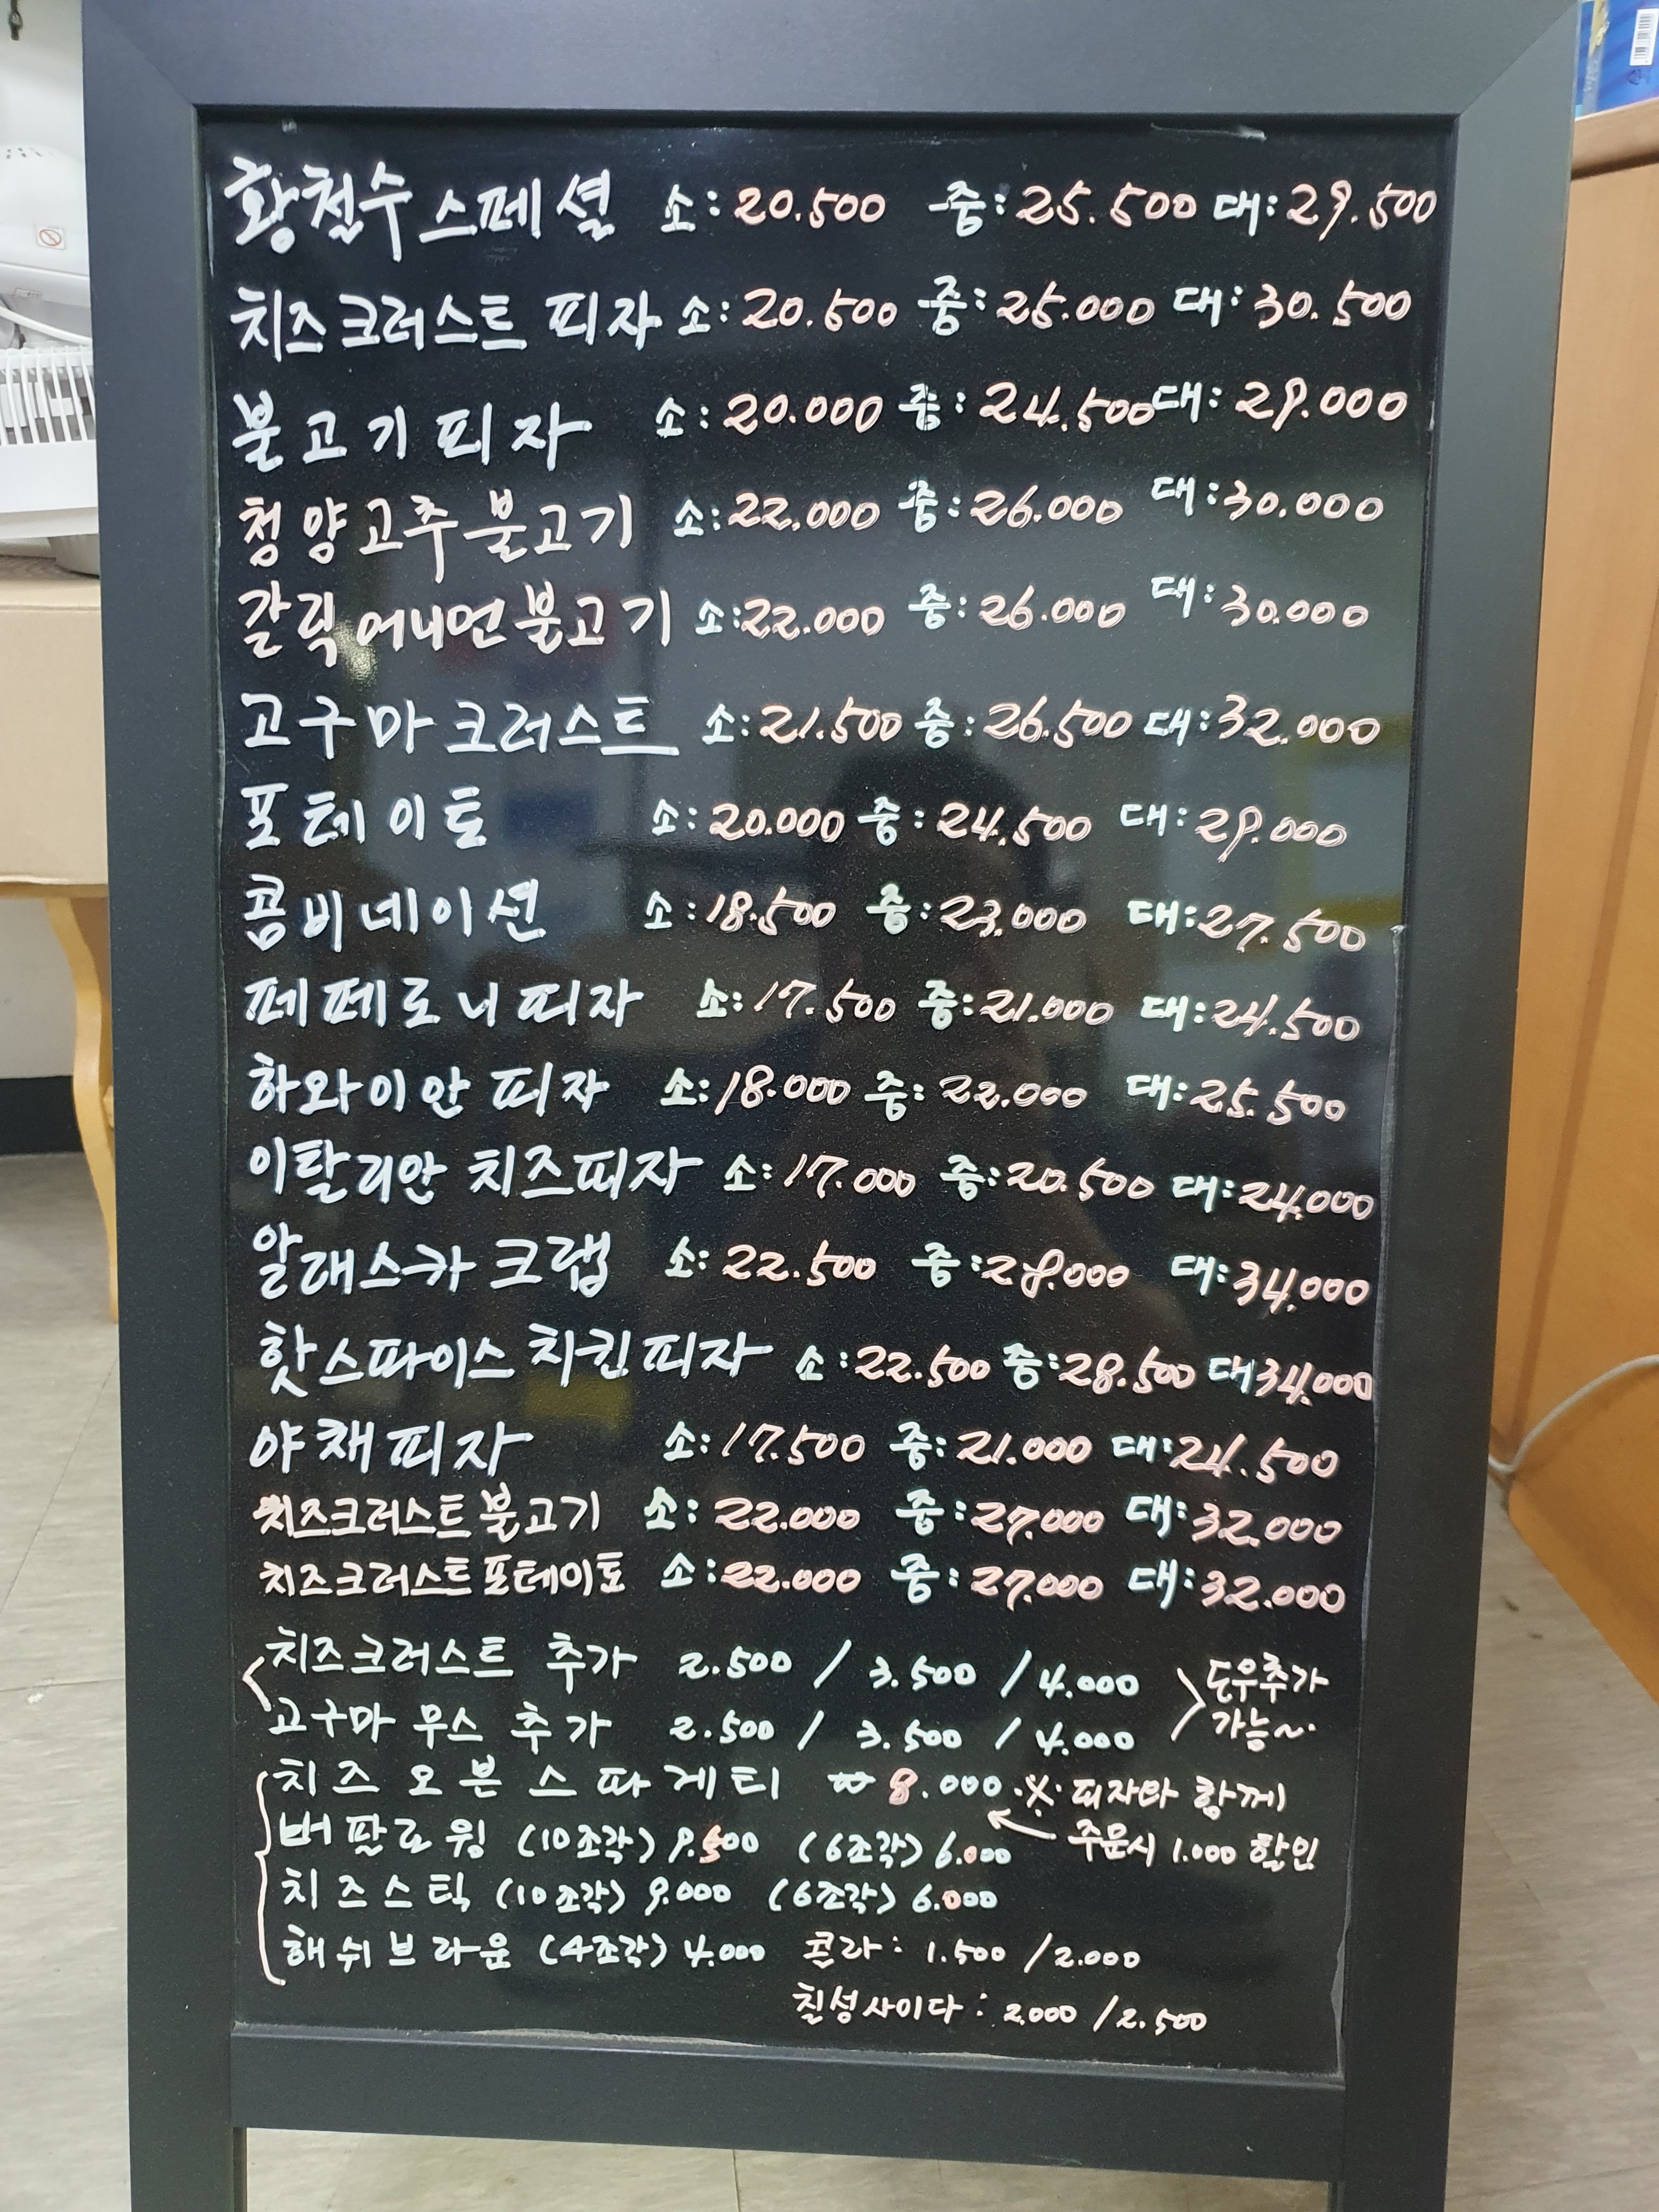 황철수스페셜 소: 20.500 중: 25.500 대: 29.500
치즈크러스트 피자 소: 20.500 중: 25.000 대: 30.500
불고기피자 소: 20.000 중: 24.500 대: 29.000
청양고추불고기 소: 22.000 중: 26.000 대: 30.000
갈릭어니언불고기 소: 22.000 중: 26.000 대: 30.000
고구마크러스트 소: 21.500 중: 26.500 대: 32.000
포테이토 소: 20.000 중: 24.500 대: 29.000
콤비네이션 소: 18.500 중: 23.000 대: 27.500
페페로니피자 소: 17.500 중: 21.000 대: 24.500
하와이안 피자 소: 18.000 중: 22.000 대: 25.500
이탈리안 치즈피자 소: 17.000 중: 20.500 대: 24.000
알래스카 크랩 소: 22.500 중: 28.000 대: 34.000
핫스파이스 치킨피자 소: 22.500 중: 28.500 대 34.000
야채피자 소: 17.500 중: 21.000 대: 24.500
치즈크러스트불고기 소: 22.000 중: 27.000 대: 32.000
치즈크러스트포테이토 소: 22.000 중: 27.000 대: 32.000
치즈크러스트 추가 2.500 / 3.500 / 4.000 도우추가
고구마 무스 추가 2.500 / 3.500 / 4.000 가능~
치즈오븐스파게티 ₩ 8.000 ※ 피자와 함께
버팔로윙 (10조각) 9.500 (6조각) 6.000 주문시 1.000 할인
치즈스틱 (10조각) 9.000 (6조각) 6.000
해쉬브라운 (4조각) 4.000 콜라: 1.500 / 2.000
칠성사이다: 2.000 / 2.500